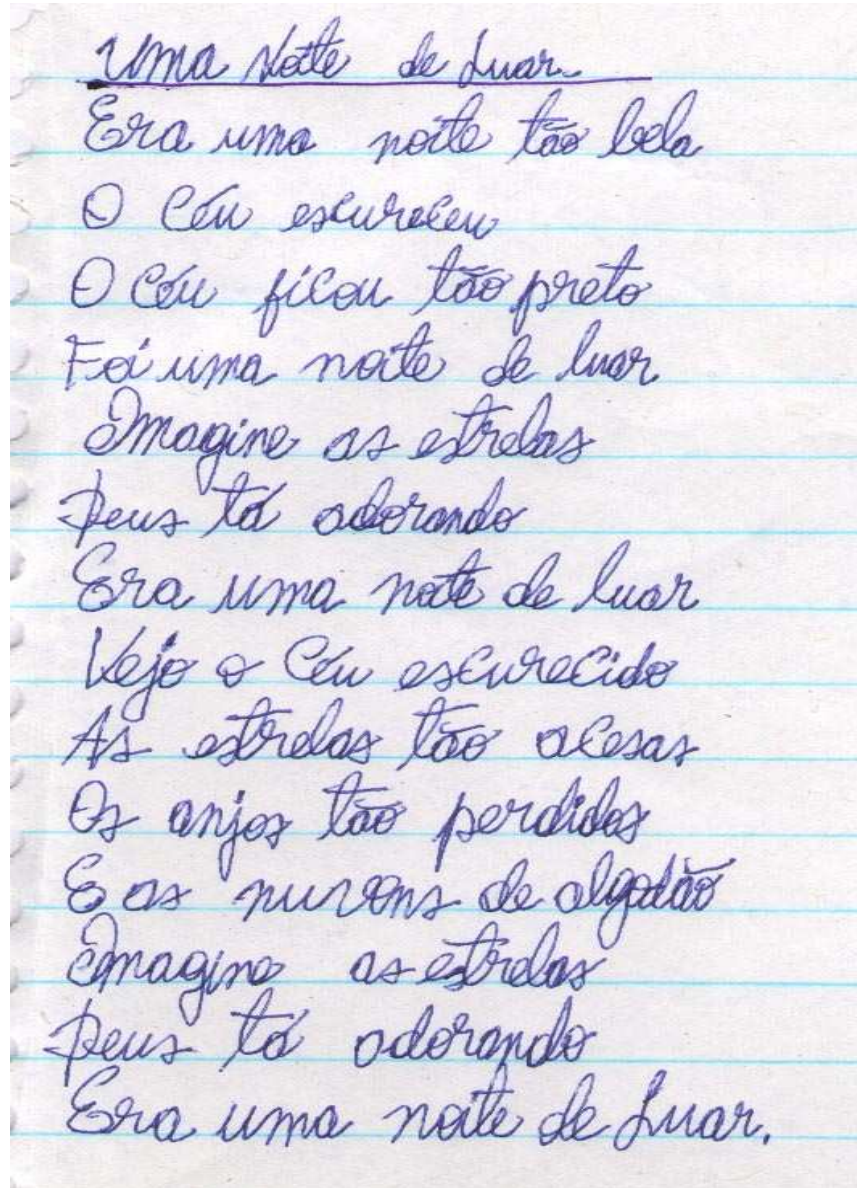 Uma Noite de Luar.
Era uma noite tão bela
O Céu escureceu
O Céu ficou tão preto
Foi uma noite de luar
Imagine as estrelas
Deus tá adorando
Era uma noite de luar
Vejo o Céu escurecido
As estrelas tão acesas
Os anjos tão perdidos
E as nuvens de algodão
Imagine as estrelas
Deus tá adorando
Era uma noite de Luar.